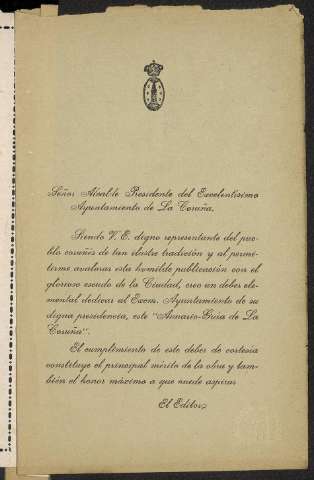 Señor Alcalde Presidente del Excelentísimo
Ayuntamiento de La Coruña.
Siendo V. E. digno representante del pue-
blo coruñés de tien ilustre tradición y al permi-
tirme avalorar esta humilde publicación con el
glorioso escudo de la Ciudad, creo un deber ele-
mental dedicar al Excm. Ayuntamiento de su
digna presidencia, este "Annario-Guía de La
Coruña".
El cumplimiento de este deber de cortesía
constituye el principal mérito de la obra y tam-
bién el honor máximo a que puede aspirar
El Editor